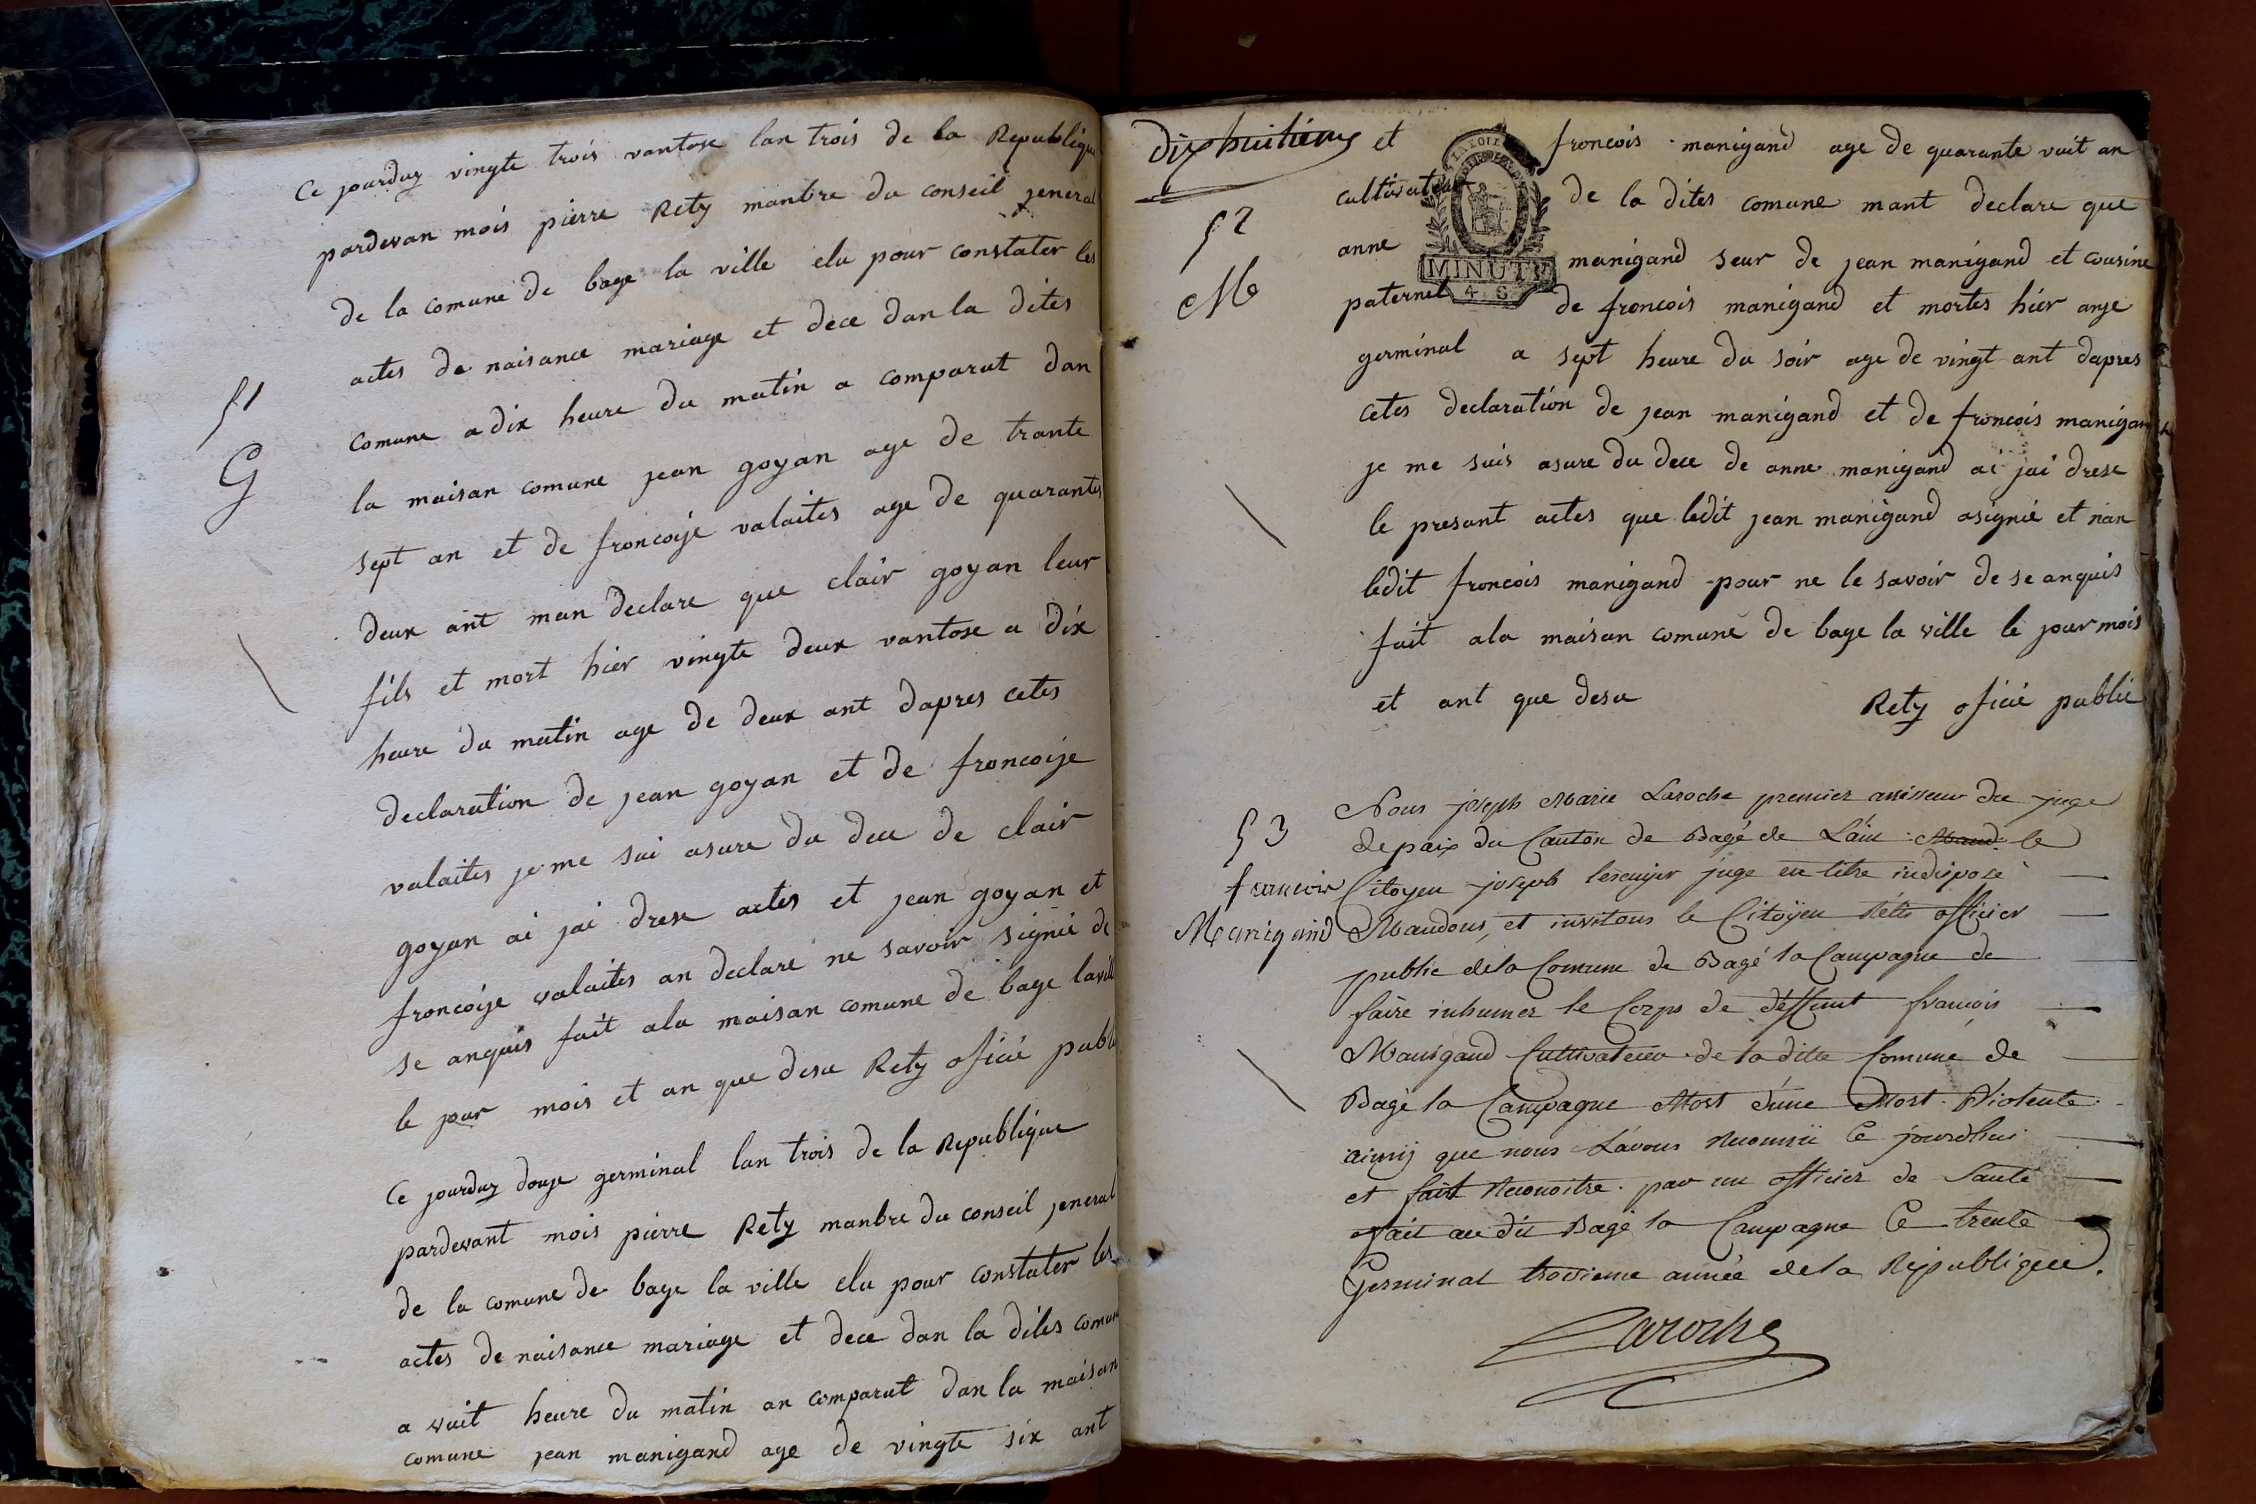 Ce jourduy vingte trois vantose lan trois de la Republique
pardevan mois pierre Rety manbre du conseil jeneral
de la comune de bage la ville elu pour constater les
actes de naisance mariage et dece dan la dites
51
comune a dix heure du matin a comparut dan
G
la maisan comune jean goyan age de trante
sept an et de froncoije valaites age de quarantes
deux ant man declare que clair goyan leur
fils et mort hier vingte deux vantose a dix
heure du matin age de deux ant dapres cetes
declaration de jean goyan et de froncoije
valaites je me sui asure du dece de clair
goyan ai jai drese actes et jean goyan et
froncoije valaites an declare ne savoir signié de
se anquis fait ala maisan comune de bage lavill
le jour mois et an que desu Rety oficié publi
Ce jourduy douje germinal lan trois de la Republique
pardevant mois pierre Rety manbre du conseil jeneral
de la comune de bage la ville elu pour constater les
actes de naisance mariage et dece dan la dites comune
a vuit heure du matin an comparut dan la maisan
comune jean manigand age de vingte six ant
Dixhuitieme et froncois manigand age de quarante vuit an
cultivateur de la dites comune mant declare que
52
anne manigand seur de jean manigand et cousine
MINUTE
4 S
M
paternel de froncois manigand et mortes hier onje
germinal a sept heure du soir age de vingt ant dapres
cetes declaration de jean manigand et de froncois manigand
je me suis asure du dece de anne manigand ai jai drese
le presant actes que ledit jean manigand asignié et nan
ledit froncois manigand pour ne le savoir de se anquis
fait ala maisan comune de bage la ville le jour mois
et ant que desu Rety oficié publie
53
francois
Manigand
Nous joseph Marie Laroche premier assisseur du juge
depaix du Canton de Bagé de L'ain Mand le
Citoyen joseph juge en titre indisposé
Mandons, et invitons le Citoÿen Réti officier
public dela Comune de Bagé la Campagne de
faire inhumer le Corps de déffunt francois
Manigand Cultivateur de la ditte Comune de
Bagé la Campagne Mort d'une Mort Violente
ainsij que nous L'avons Reconnü Ce jourdhui
et fait Reconoitre par un officier de Santé
fait au dit Bagé la Campagne Ce trente
Germinal troisieme année dela République.
Laroche